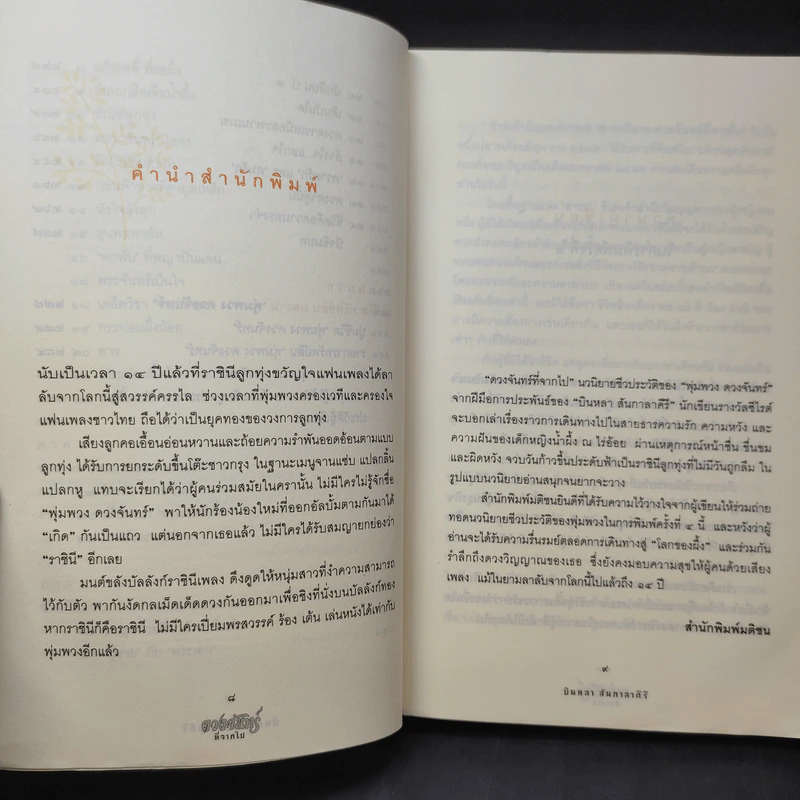 คำนำสำนักพิมพ์
นับเป็นเวลา ๑๔ ปีแล้วที่ราชินีลูกทุ่งขวัญใจแฟนเพลงได้ลา
ลับจากโลกนี้สู่สวรรค์ครรไล ช่วงเวลาที่พุ่มพวงครองเวทีและครองใจ
แฟนเพลงชาวไทย ถือได้ว่าเป็นยุคทองของวงการลูกทุ่ง
เสียงลูกคอเอื้อนอ่อนหวานและถ้อยความรำพันออดอ้อนตามแบบ
ลูกทุ่ง ได้รับการยกระดับขึ้นโต๊ะชาวกรุง ในฐานะเมนูจานแซ่บ แปลกลิ้น
แปลกหู แทบจะเรียกได้ว่าผู้คนร่วมสมัยในคราวนั้น ไม่มีใครไม่รู้จักชื่อ
“พุ่มพวง ดวงจันทร์” พาให้นักร้องน้องใหม่ที่ออกอัลบั้มตามกันมาได้
“เกิด” กันเป็นแถว แต่นอกจากเธอแล้ว ไม่มีใครได้รับสมญายกย่องว่า
“ราชินี” อีกเลย
มนต์ขลังบัลลังก์ราชินีเพลง ดึงดูดให้หนุ่มสาวที่งำความสามารถ
ไว้กับตัว พากันงัดกลเม็ดเด็ดดวงกันออกมาเพื่อชิงที่นั่งบนบัลลังก์ทอง
หากราชินีก็คือราชินี ไม่มีใครเปี่ยมพรสวรรค์ ร้อง เต้น เล่นหนังได้เท่ากับ
พุ่มพวงอีกแล้ว
๘
ดวงจันทร์
ที่จากไป
“ดวงจันทร์ที่จากไป” นวนิยายชีวประวัติของ “พุ่มพวง ดวงจันทร์”
จากฝีมือการประพันธ์ของ “บินหลา สันกาลาคีรี” นักเขียนรางวัลซีไรต์
จะบอกเล่าเรื่องราวการเดินทางไปในสายธารความรัก ความหวัง และ
ความฝันของเด็กหญิงน้ำผึ้ง ณ ไร่อ้อย ผ่านเหตุการณ์หน้าชื่น ขื่นขม
และผิดหวัง จวบวันก้าวขึ้นประดับฟ้าเป็นราชินีลูกทุ่งที่ไม่มีวันถูกลืม ใน
รูปแบบนวนิยายอ่านสนุกจนยากจะวาง
สำนักพิมพ์มติชนยินดีที่ได้รับความไว้วางใจจากผู้เขียนให้ร่วมถ่าย
ทอดนวนิยายชีวประวัติของพุ่มพวงในการพิมพ์ครั้งที่ ๔ นี้ และหวังว่าผู้
อ่านจะได้รับความรื่นรมย์ตลอดการเดินทางสู่ “โลกของผึ้ง” และร่วมกัน
รำลึกถึงดวงวิญญาณของเธอ ซึ่งยังคงมอบความสุขให้ผู้คนด้วยเสียง
เพลง แม้ในยามลาลับจากโลกนี้ไปแล้วถึง ๑๔ ปี
สำนักพิมพ์มติชน
๙
บินหลา สันกาลาคีรี